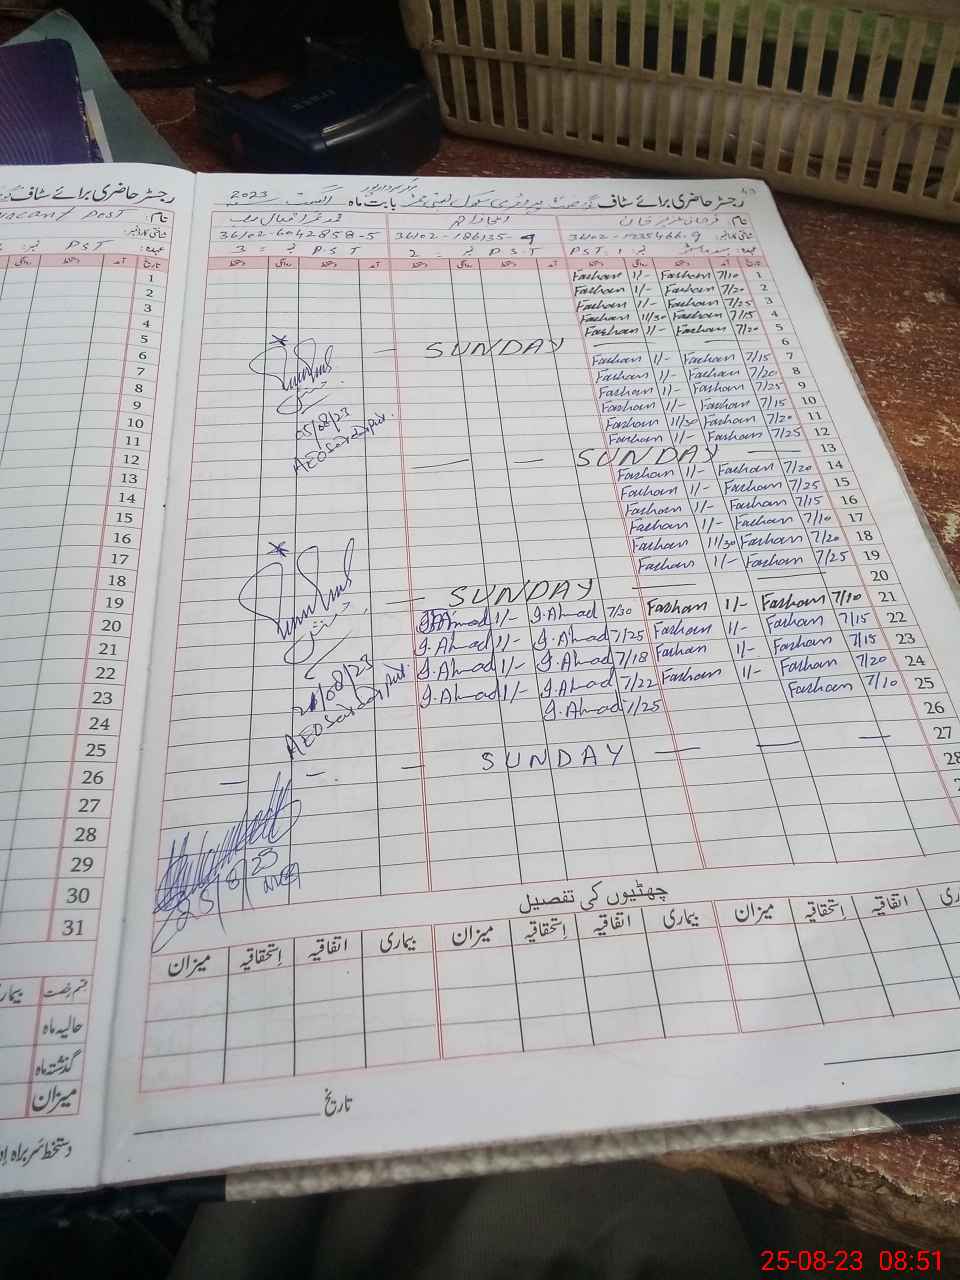 رجسٹر حاضری برائے سٹاف
رجسٹر حاضری برائے سٹاف
بابت ماہ اگست 2023
نام:
Vacant post
نام: فرحان عزیز خان
محمد اقبال
36102-6042858-5
36102-186135-9
36102-1935466-9
عہدہ:
PST
3 نمبر PST
2 نمبر PST
PST 1
تاریخ آمد دستخط
1 Farhan 7/10 Farhan 1/-
2 Farhan 7/20 Farhan 1/-
3 Farhan 7/25 Farhan 1/-
4 Farhan 7/15 Farhan 11/30
5 Farhan 7/20 Farhan 1/-
6 — SUNDAY —
7 Farhan 7/15 Farhan 1/-
8 Farhan 7/20 Farhan 1/-
9 Farhan 7/25 Farhan 1/-
10 Farhan 7/15 Farhan 1/-
11 Farhan 7/20 Farhan 11/30
12 Farhan 7/25 Farhan 1/-
13 — SUNDAY — —
14 Farhan 7/20 Farhan 1/-
15 Farhan 7/25 Farhan 1/-
16 Farhan 7/15 Farhan 1/-
17 Farhan 7/10 Farhan 1/-
18 Farhan 7/20 Farhan 11/30
19 Farhan 7/25 Farhan 1/-
20 — SUNDAY —
21 Farhan 7/10 Farhan 1/- I.Ahmad 7/30 I.Ahmad 1/-
22 Farhan 7/15 Farhan 1/- I.Ahmad 7/25 I.Ahmad 1/-
23 Farhan 7/15 Farhan 1/- I.Ahmad 7/18 I.Ahmad 1/-
24 Farhan 7/20 Farhan 1/- I.Ahmad 7/22 I.Ahmad 1/-
25 Farhan 7/10 I.Ahmad 7/25
26
27 — — — SUNDAY — — —
28
05/08/23
AEO Sardarpur.
21/08/23
AEO Sardarpur.
25/8/23
MEA
1
2
3
4
5
6
7
8
9
10
11
12
13
14
15
16
17
18
19
20
21
22
23
24
25
26
27
28
29
30
31
چھٹیوں کی تفصیل
اتفاقیہ اِستحقاقیہ میزان بیماری اتفاقیہ اِستحقاقیہ میزان بیماری اتفاقیہ اِستحقاقیہ میزان
قسم رخصت
حالیہ ماہ
گذشتہ ماہ
میزان
تاریخ
دستخط سربراہ
25-08-23 08:51